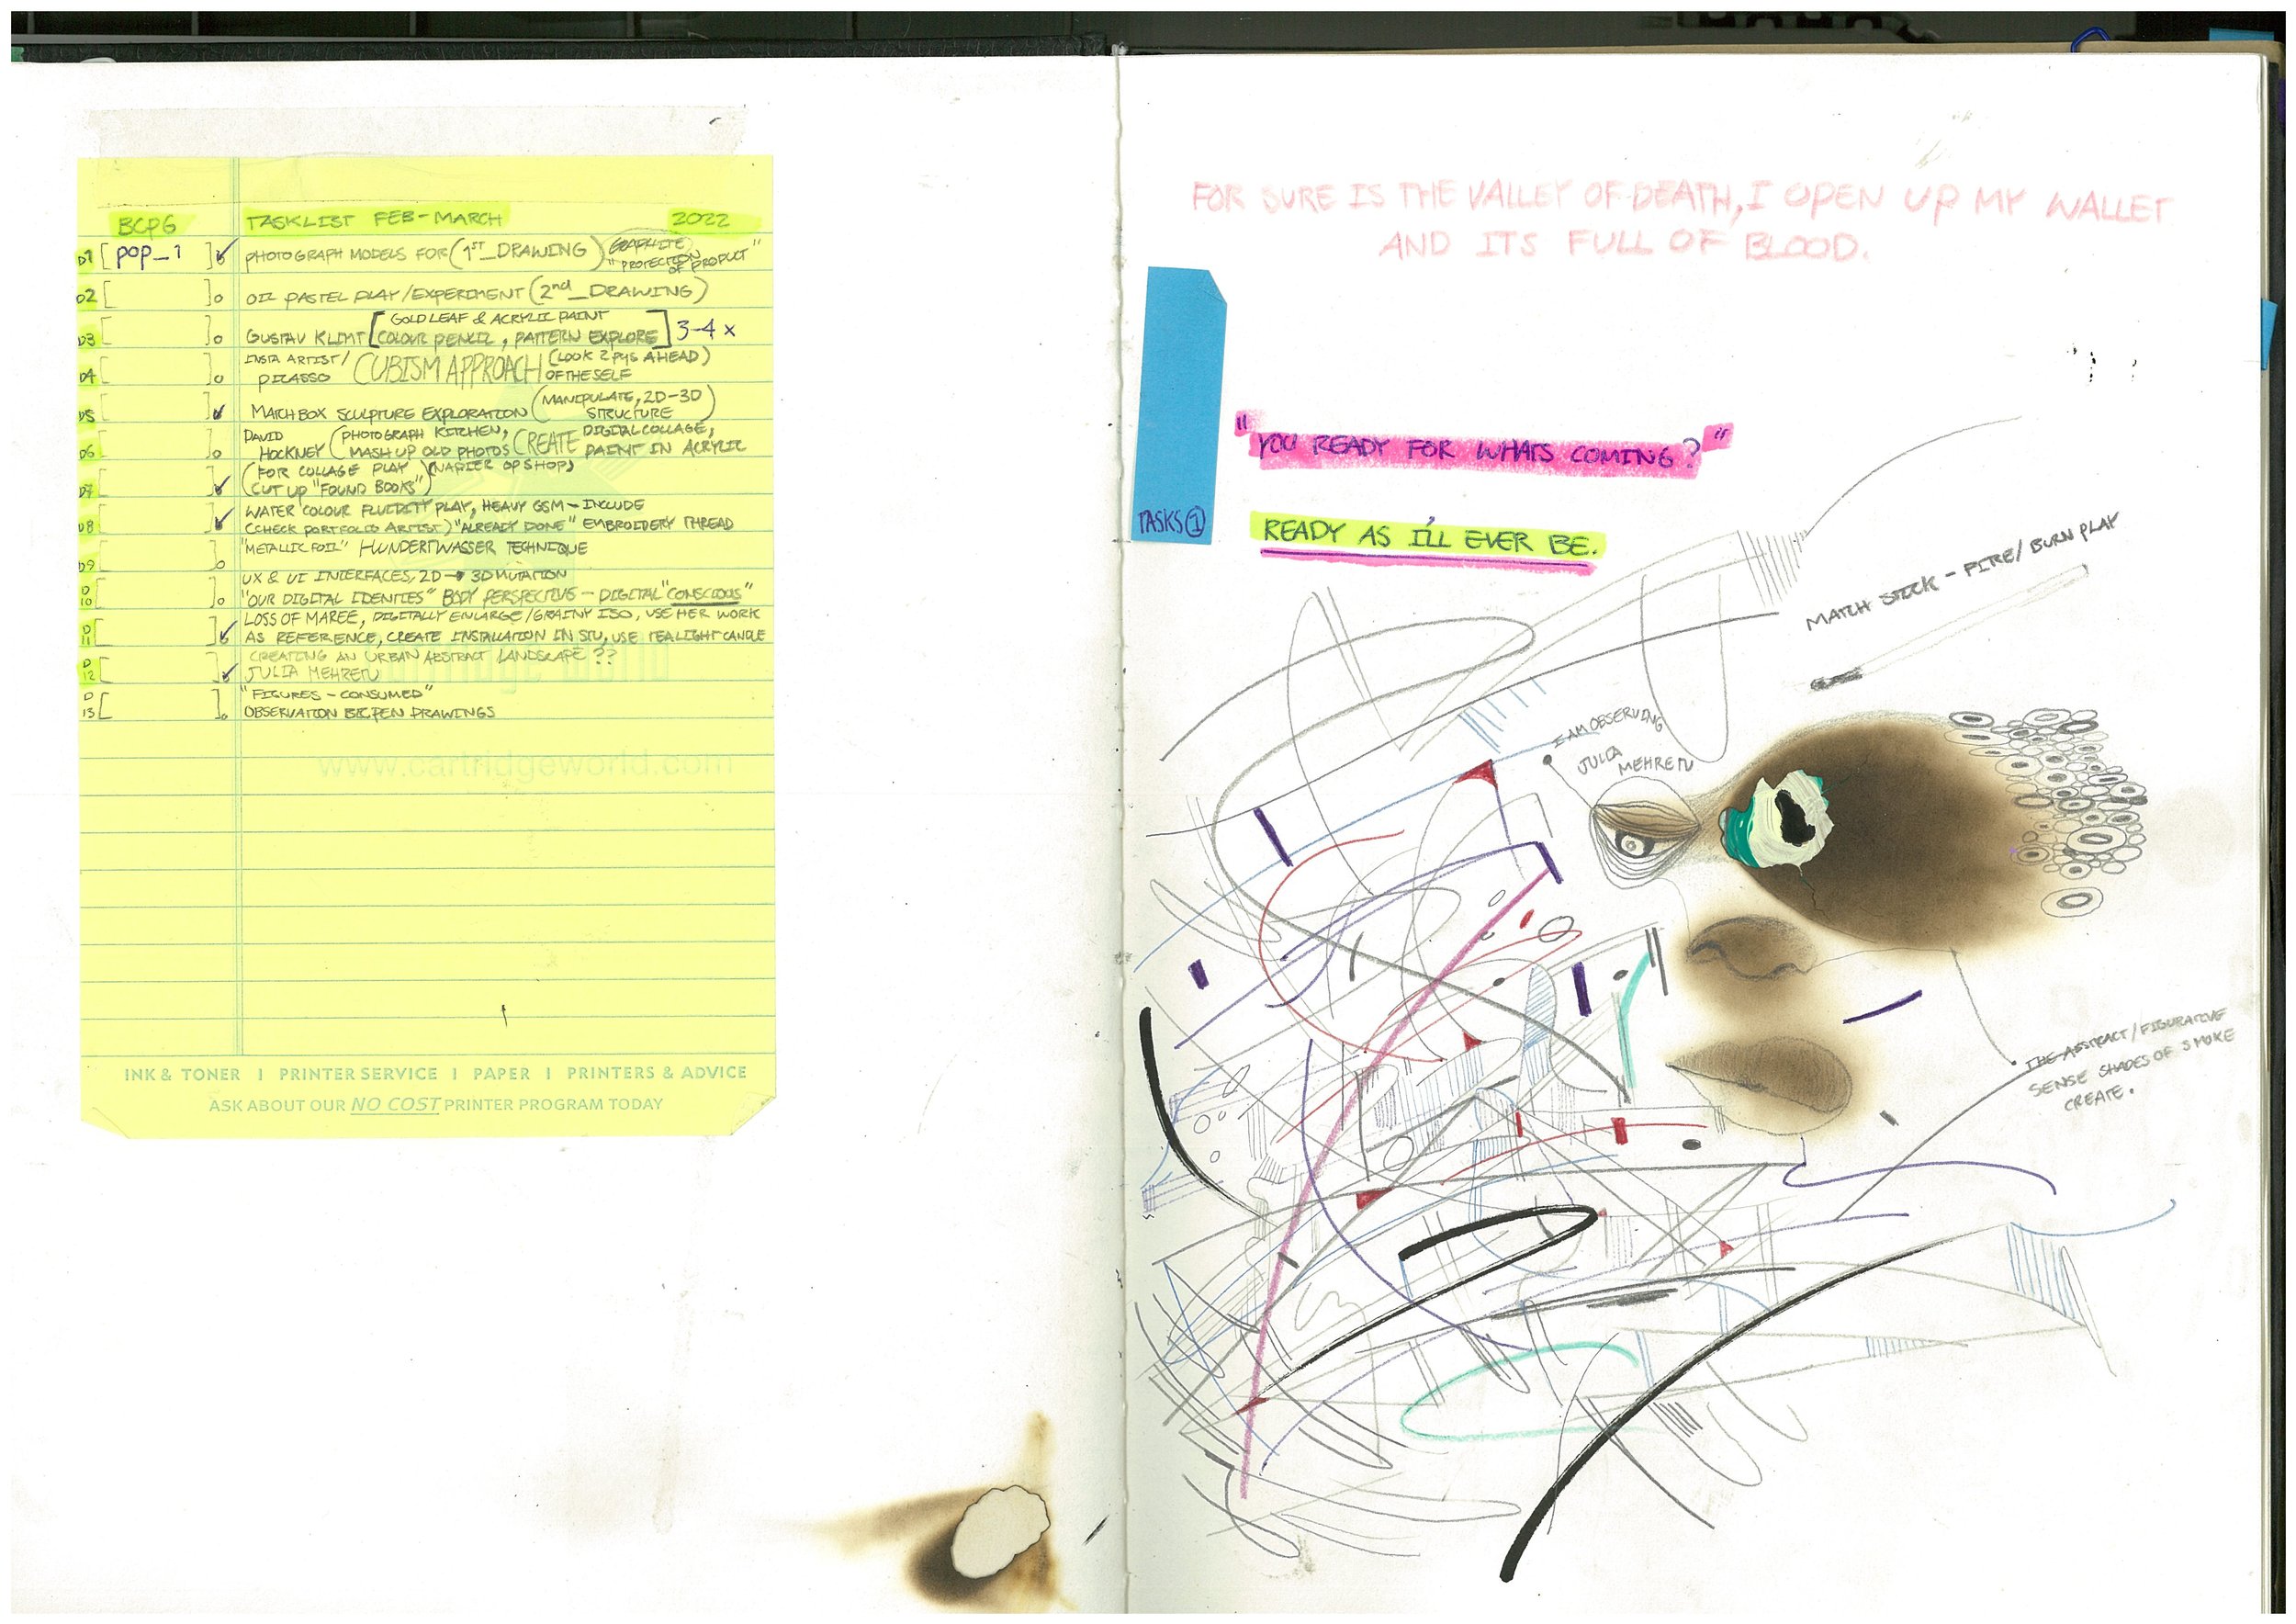 BCPG TASKLIST FEB-MARCH 2022
D1 [ POP_1 ] PHOTOGRAPH MODELS FOR (1ST_DRAWING) GRAPHITE
"PROTECTION OF PRODUCT"
D2 [ ] OIL PASTEL PLAY/EXPERIMENT (2nd_DRAWING)
GOLD LEAF & ACRYLIC PAINT
D3 [ ] GUSTAV KLIMT [COLOUR PENCIL, PATTERN EXPLORE] 3-4 x
INSTA ARTIST/ CUBISM APPROACH (LOOK 2 pgs AHEAD)
D4 [ ] PICASSO OF THE SELF
D5 [ ] MATCHBOX SCULPTURE EXPLORATION (MANIPULATE, 2D-3D STRUCTURE)
DAVID (PHOTOGRAPH KITCHEN, CREATE DIGITAL COLLAGE,
D6 [ ] HOCKNEY MASH UP OLD PHOTOS PAINT IN ACRYLIC
(FOR COLLAGE PLAY) (NAPIER OP SHOP)
D7 [ ] (CUT UP "FOUND BOOKS")
WATER COLOUR FLUIDITY PLAY, HEAVY GSM - INCLUDE
D8 [ ] (CHECK PORTFOLIO ARTIST) "ALREADY DONE" EMBROIDERY THREAD
D9 [ ] "METALLIC FOIL" HUNDERTWASSER TECHNIQUE
UX & UI INTERFACES, 2D → 3D MUTATION
D10 [ ] "OUR DIGITAL IDENTIES" BODY PERSPECTIVE - DIGITAL "CONSCIOUS"
LOSS OF MAREE, DIGITALLY ENLARGE/GRAINY ISO, USE HER WORK
D11 [ ] AS REFERENCE, CREATE INSTALLATION IN STU, USE TEALIGHT CANDLE
CREATING AN URBAN ABSTRACT LANDSCAPE ??
D12 [ ] JULIA MEHRETU
"FIGURES - CONSUMED"
D13 [ ] OBSERVATION BIC PEN DRAWINGS
www.cartridgeworld.com
INK & TONER I PRINTER SERVICE I PAPER I PRINTERS & ADVICE
ASK ABOUT OUR NO COST PRINTER PROGRAM TODAY
FOR SURE IS THE VALLEY OF DEATH, I OPEN UP MY WALLET
AND ITS FULL OF BLOOD.
TASKS 1
"YOU READY FOR WHATS COMING?"
READY AS I'LL EVER BE.
MATCH STICK - FIRE/BURN PLAY
I AM OBSERVING
JULIA
MEHRETU
THE ABSTRACT/FIGURATIVE
SENSE SHADES OF SMOKE
CREATE.